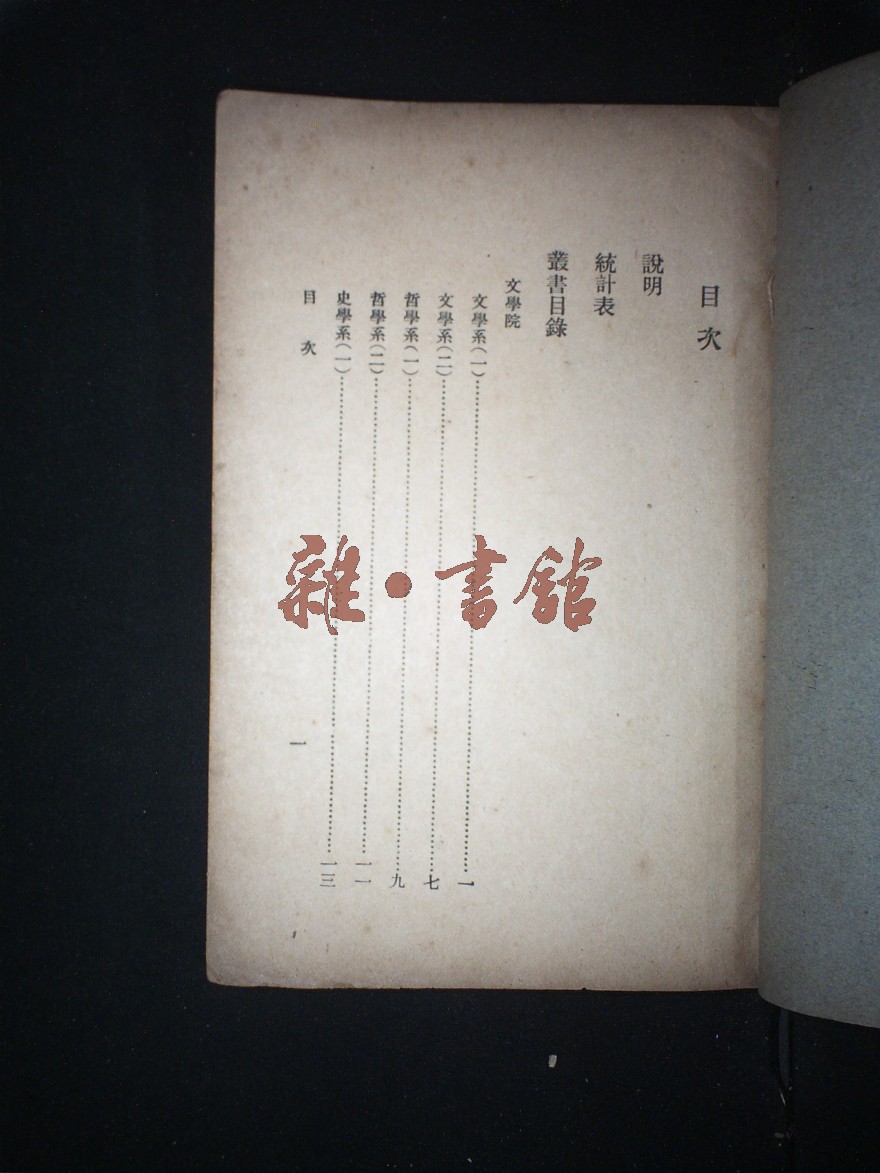 目次
說明
統計表
叢書目錄
文學院
文學系(一)……一
文學系(二)……七
哲學系(一)……九
哲學系(二)……一一
史學系(一)……一三
目次 一
雜·書館